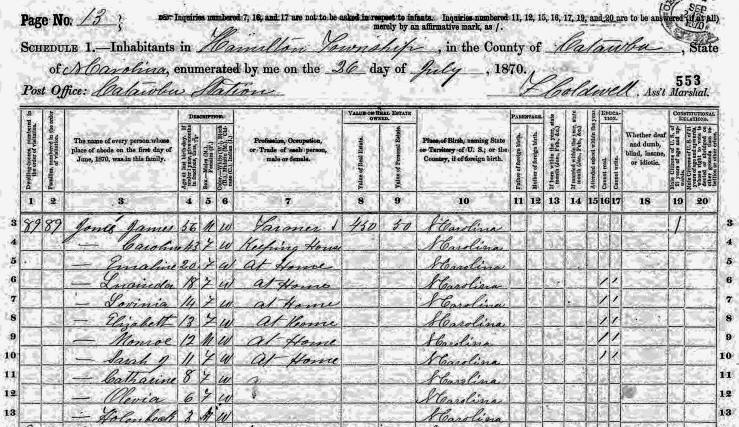 Page No. 13
Inquiries numbered 7, 16, and 17 are not to be asked in respect to infants. Inquiries numbered 11, 12, 15, 16, 17, 19, and 20 are to be answered (if at all)
merely by an affirmative mark, as /.
SCHEDULE 1.—Inhabitants in Hamilton Township, in the County of Catawba, State
of N Carolina, enumerated by me on the 26 day of July, 1870.
553
Post Office: Catawba Station Coldwell, Ass't Marshal.
DESCRIPTION. VALUE OF REAL ESTATE OWNED. PARENTAGE. EDUCATION. CONSTITUTIONAL RELATIONS.
The name of every person whose place of abode on the first day of June, 1870, was in this family.
Profession, Occupation, or Trade of each person, male or female.
Value of Real Estate.
Value of Personal Estate.
Place of Birth, naming State or Territory of U. S.; or the Country, if of foreign birth.
Father of foreign birth.
Mother of foreign birth.
Attended school within the year.
Cannot read.
Cannot write.
Whether deaf and dumb, blind, insane, or idiotic.
1 2 3 4 5 6 7 8 9 10 11 12 13 14 15 16 17 18 19 20
3 89 89 James 56 M W 450 50 N Carolina / 3
4 — Caroline 43 F W Keeping House N Carolina 4
5 — Emaline 20 F W At Home N Carolina 5
6 — 18 F W At Home N Carolina / / 6
7 — Lovinia 14 F W At Home N Carolina / / 7
8 — Elizabeth 13 F W At Home N Carolina / / 8
9 — Monroe 12 M W At Home N Carolina / / 9
10 — Sarah J 11 F W At Home N Carolina / / 10
11 — Catharine 8 F W N Carolina 11
12 — Olevia 6 F W N Carolina 12
13 — 3 M W N Carolina 13